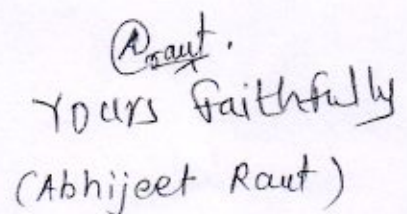 Araut.
Yours faithfully
(Abhijeet Raut)